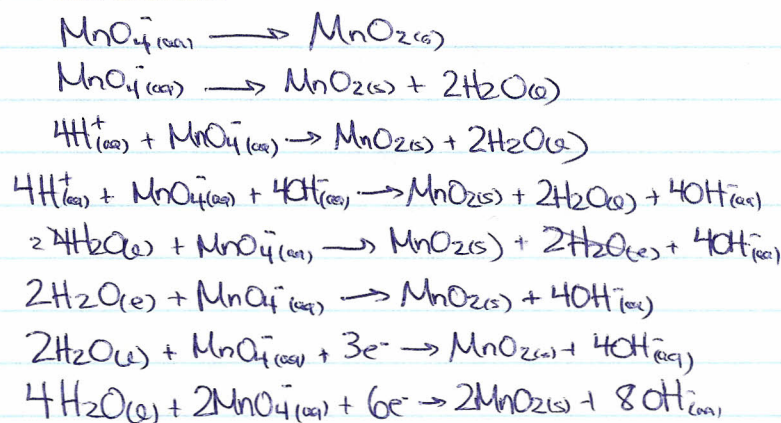 MnO₄⁻(aq) → MnO₂(s)
MnO₄⁻(aq) → MnO₂(s) + 2H₂O(l)
4H⁺(aq) + MnO₄⁻(aq) → MnO₂(s) + 2H₂O(l)
4H⁺(aq) + MnO₄⁻(aq) + 4OH⁻(aq) → MnO₂(s) + 2H₂O(l) + 4OH⁻(aq)
2 4H₂O(l) + MnO₄⁻(aq) → MnO₂(s) + 2H₂O(l) + 4OH⁻(aq)
2H₂O(l) + MnO₄⁻(aq) → MnO₂(s) + 4OH⁻(aq)
2H₂O(l) + MnO₄⁻(aq) + 3e⁻ → MnO₂(s) + 4OH⁻(aq)
4H₂O(l) + 2MnO₄⁻(aq) + 6e⁻ → 2MnO₂(s) + 8OH⁻(aq)